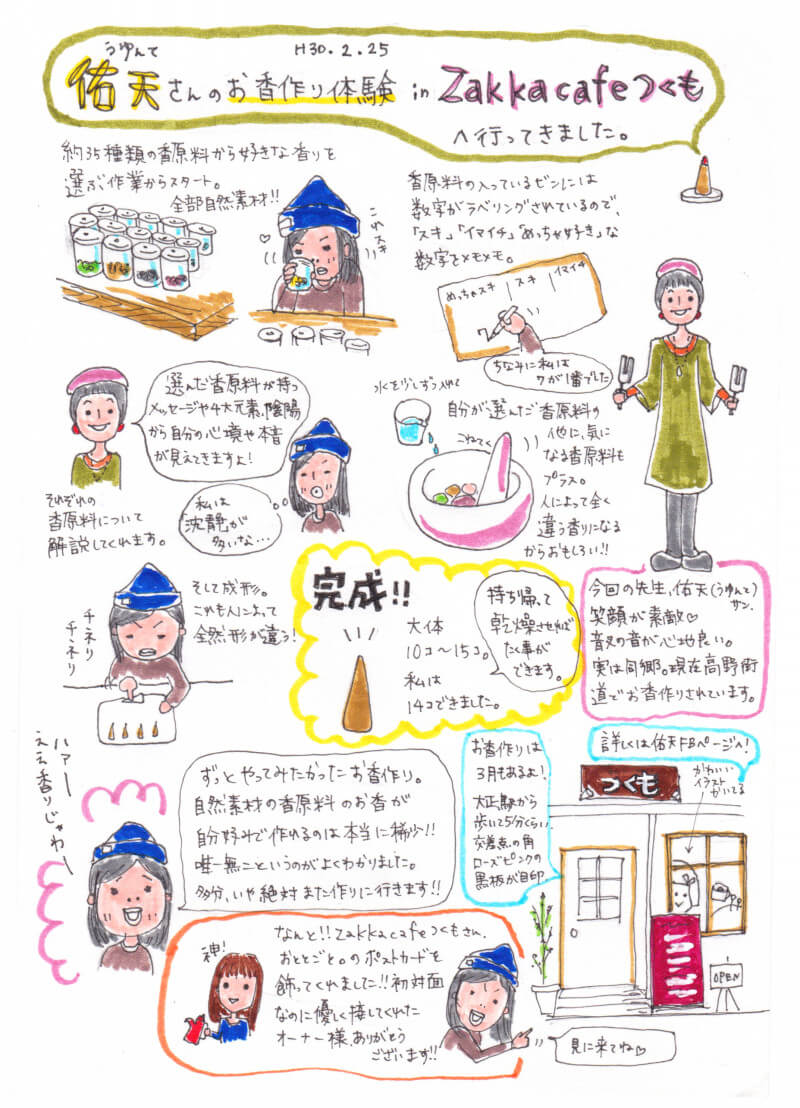 うゆんて
H30.2.25
佑天さんのお香作り体験 in Zakka cafe つくも
へ行ってきました。
約35種類の香原料から好きな香りを
選ぶ作業からスタート。
全部自然素材!!
これスキ
香原料の入っているビンには
数字がラベリングされているので、
「スキ」「イマイチ」「めっちゃ好き」な
数字をメモメモ。
めっちゃスキ
スキ
イマイチ
7
ちなみに私は
7が1番でした
選んだ香原料が持つ
メッセージや4大元素、陰陽
から自分の心境や本音
が見えてきますよ!
それぞれの
香原料について
解説してくれます。
私は
沈静が
多いな…
水を少しずつ入れる
こねてく
自分が選んだ香原料の
他に、気に
なる香原料も
プラス。
人によって全く
違う香りになる
からおもしろい!!
そして成形。
これも人によって
全然形が違う!
チネリ
チネリ
完成!!
大体
10コ〜15コ。
私は
14コできました。
持ち帰って
乾燥させれば
たく事が
できます。
今回の先生、佑天(うゆんて)
サン。
笑顔が素敵♡
音叉の音が心地良い。
実は同郷。現在高野街
道でお香作りされています。
ハァー
ええ香りじゃわー
ずっとやってみたかったお香作り。
自然素材の香原料のお香が
自分好みで作れるのは本当に稀少!!
唯一無二というのがよくわかりました。
多分、いや絶対また作りに行きます!!
お香作りは
3月もあるよ!
大正駅から
歩いて5分くらい
交差点の角
ローズピンクの
黒板が目印
詳しくは佑天FBページへ!
つくも
かわいい
イラスト
かいてる
MENU
OPEN
神!
なんと!!Zakka cafe つくもさん、
おととごと。のポストカードを
飾ってくれました!!初対面
なのに優しく接してくれた
オーナー様、ありがとう
ございます!!
見に来てね♡